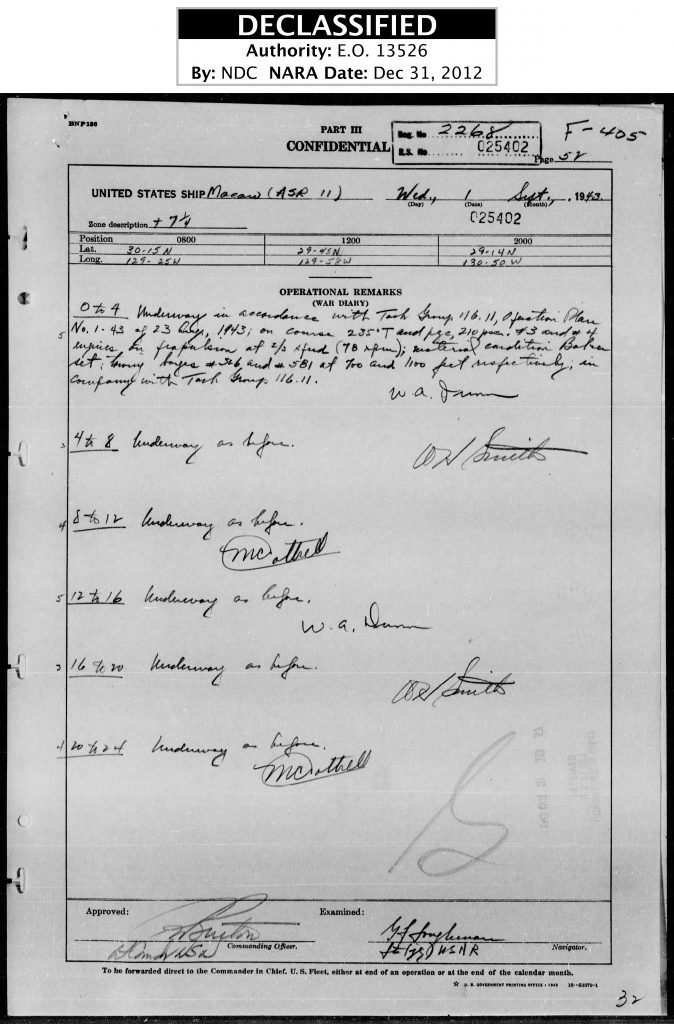 DECLASSIFIED
Authority: E.O. 13526
By: NDC NARA Date: Dec 31, 2012
BNP186
PART III
CONFIDENTIAL
Reg. No 2268
R.S. No 025402
F-405
Page 52
UNITED STATES SHIP Macaw (ASR 11) Wed., 1 Sept., 1943.
(Day) (Date) (Month)
025402
Zone description + 7 1/4
Position 0800 1200 2000
Lat. 30-15N 29-45N 29-14N
Long. 129-25W 129-58W 130-50W
OPERATIONAL REMARKS
(WAR DIARY)
0 to 4 Underway in accordance with Task Group 116.11, Operation Plan
No. 1-43 of 23 Aug., 1943; on course 235°T and pgc, 210 psc. #3 and #4
engines on propulsion at 2/3 speed (78 rpm); material condition Baker
set; towing barges #326 and #581 at 700 and 1100 feet respectively; in
company with Task Group 116.11.
5
W. A. Dunn
3 4 to 8 Underway as before.
W Smith
4 8 to 12 Underway as before.
5 12 to 16 Underway as before.
W. A. Dunn
3 16 to 20 Underway as before.
W Smith
4 20 to 24 Underway as before.
Approved: Examined:
Burton
Lt (jg) USNR
Commanding Officer. Navigator.
To be forwarded direct to the Commander in Chief, U. S. Fleet, either at end of an operation or at the end of the calendar month.
☆ U. S. GOVERNMENT PRINTING OFFICE : 1943
32